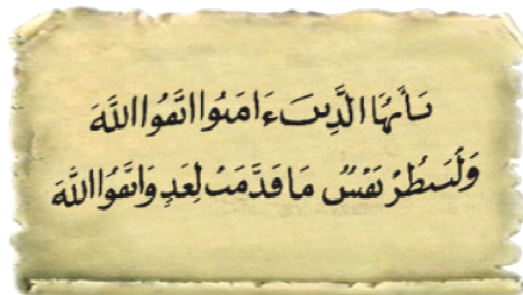 يَٰأَيُّهَا الَّذِينَ ءَامَنُوا اتَّقُوا اللَّهَ
وَلْتَنظُرْ نَفْسٌ مَا قَدَّمَتْ لِغَدٍ وَاتَّقُوا اللَّهَ